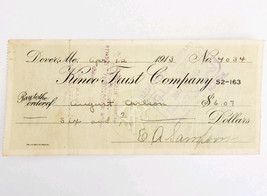 Dover, Me. Apr 12 1913 No. 4034
Kineo Trust Company 52-163
Pay to the
order of August Carlson $6.09
Six and 09/100 Dollars
E A Sampson